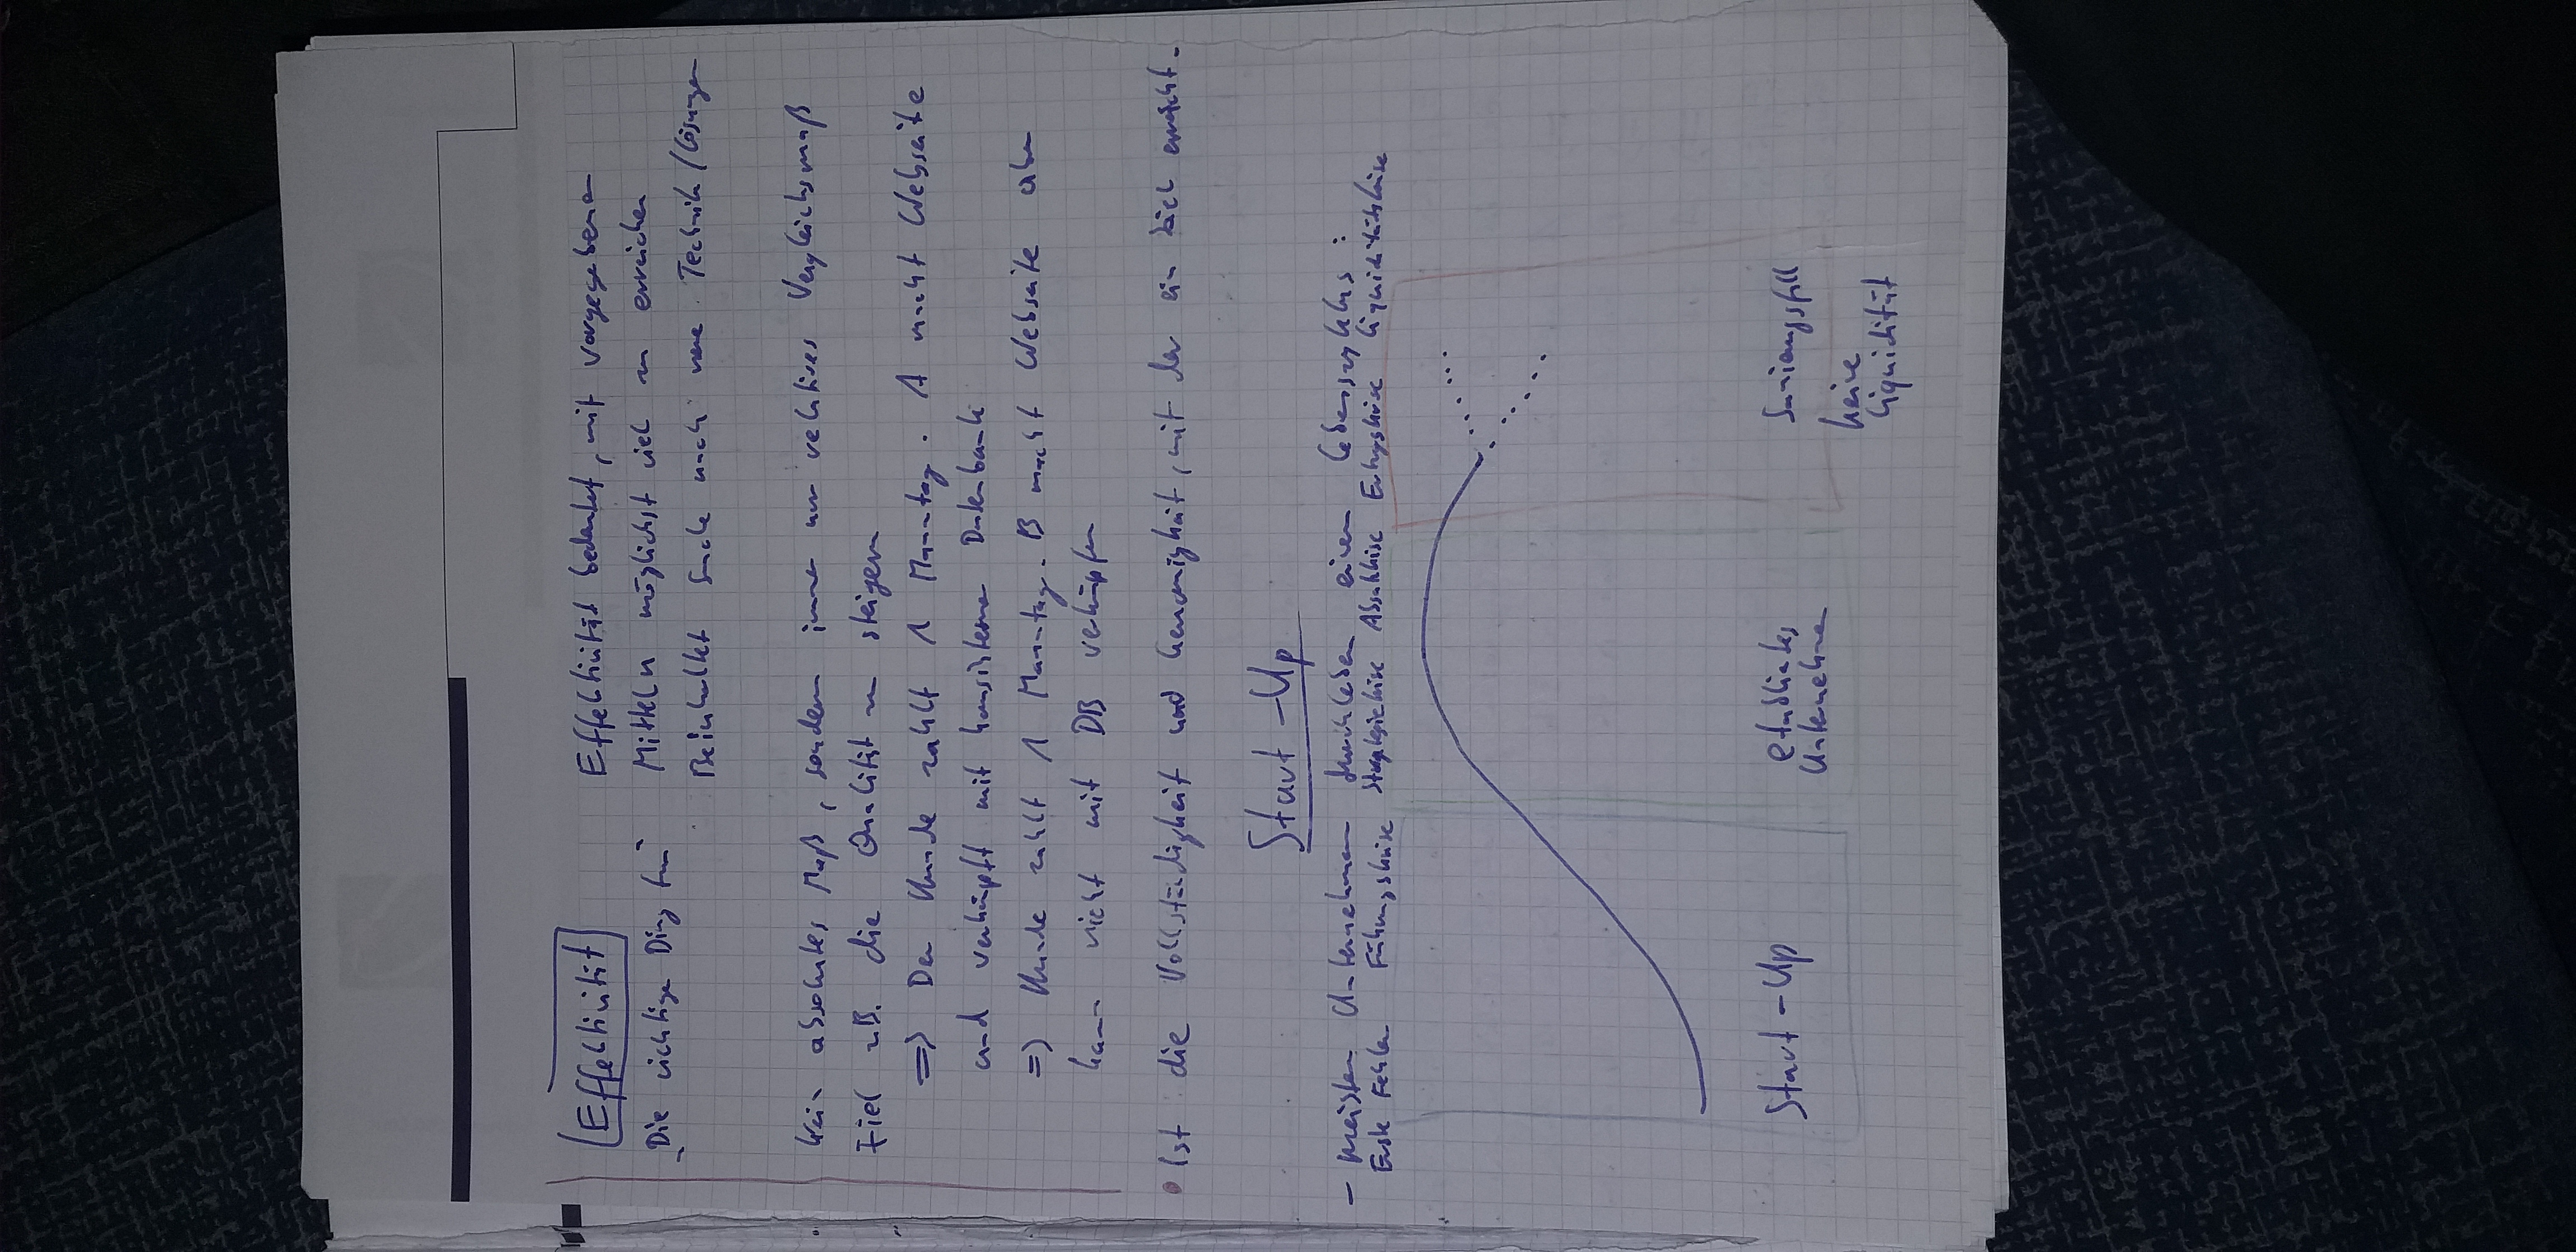 Effektivität
„Die richtige Ding tun"
Effektivität bedeutet, mit vorgegebenen
Mitteln möglichst viel zu erreichen
Beinhaltet Suche nach neue Technik / Lösungen
Kein absolutes Maß, sondern immer nur relatives Vergleichsmaß
Ziel z.B. die Qualität zu steigern
=> Der Kunde zahlt 1 Manntag. A macht Webseite
und verknüpft mit hausinterner Datenbank
=> Kunde zahlt 1 Manntag. B macht Webseite aber
kann nicht mit DB verknüpfen
Ist die Vollständigkeit und Genauigkeit, mit der ein Ziel erreicht.
Start-Up
- meisten Unternehmen durchleben einen Lebenszyklus:
Erste Fehler Führungskrise Strategiekrise Absatzkrise Ertragskrise Liquiditätskrise
Start-Up
etabliertes
Unternehmen
Sanierungsfall
keine
Liquidität